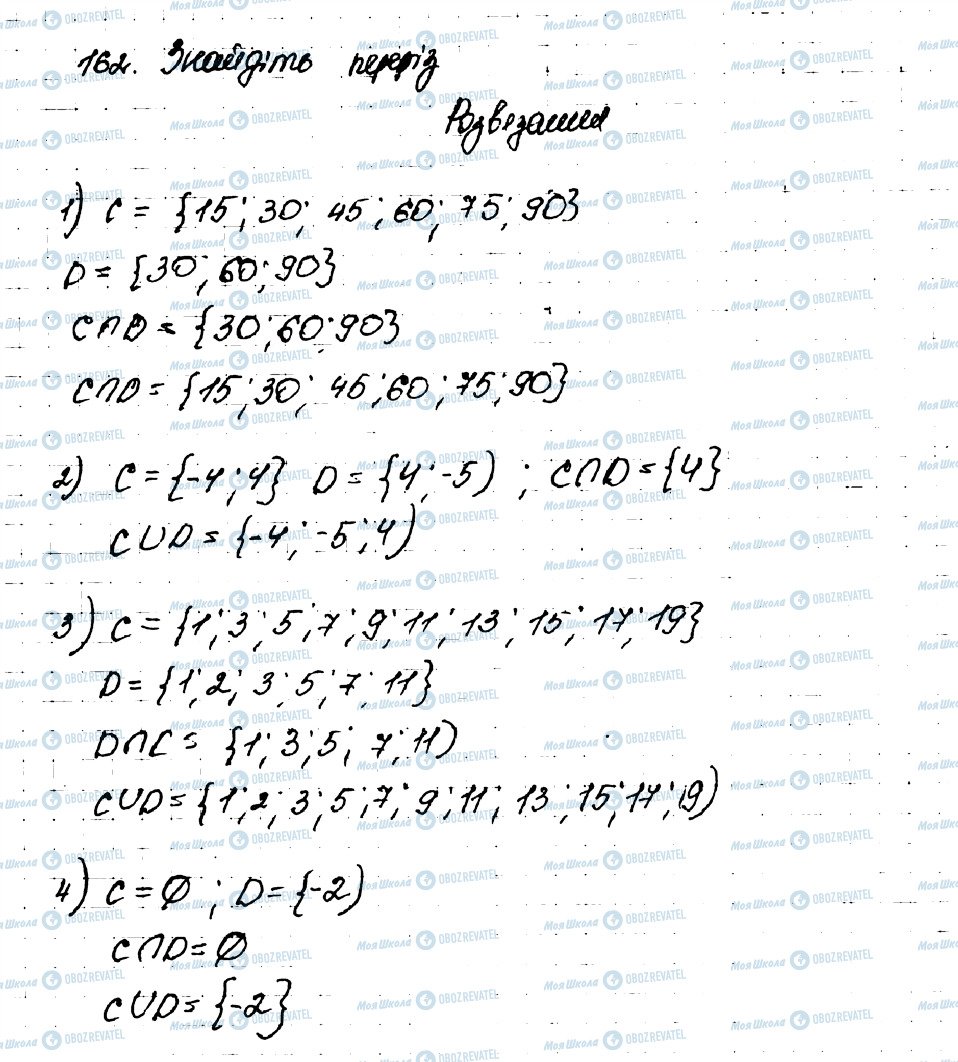 162. Знайдіть переріз
Розвязання
1) C = {15; 30; 45; 60; 75; 90}
D = {30; 60; 90}
C∩D = {30; 60; 90}
C∩D = {15; 30; 45; 60; 75; 90}
2) C = {-4; 4} D = {4; -5) ; C∩D = {4}
C∪D = {-4; -5; 4)
3) C = {1; 3; 5; 7; 9; 11; 13; 15; 17; 19}
D = {1; 2; 3; 5; 7; 11}
D∩C = {1; 3; 5; 7; 11)
C∪D = {1; 2; 3; 5; 7; 9; 11; 13; 15; 17; 19)
4) C = ∅ ; D = {-2)
C∩D = ∅
C∪D = {-2}